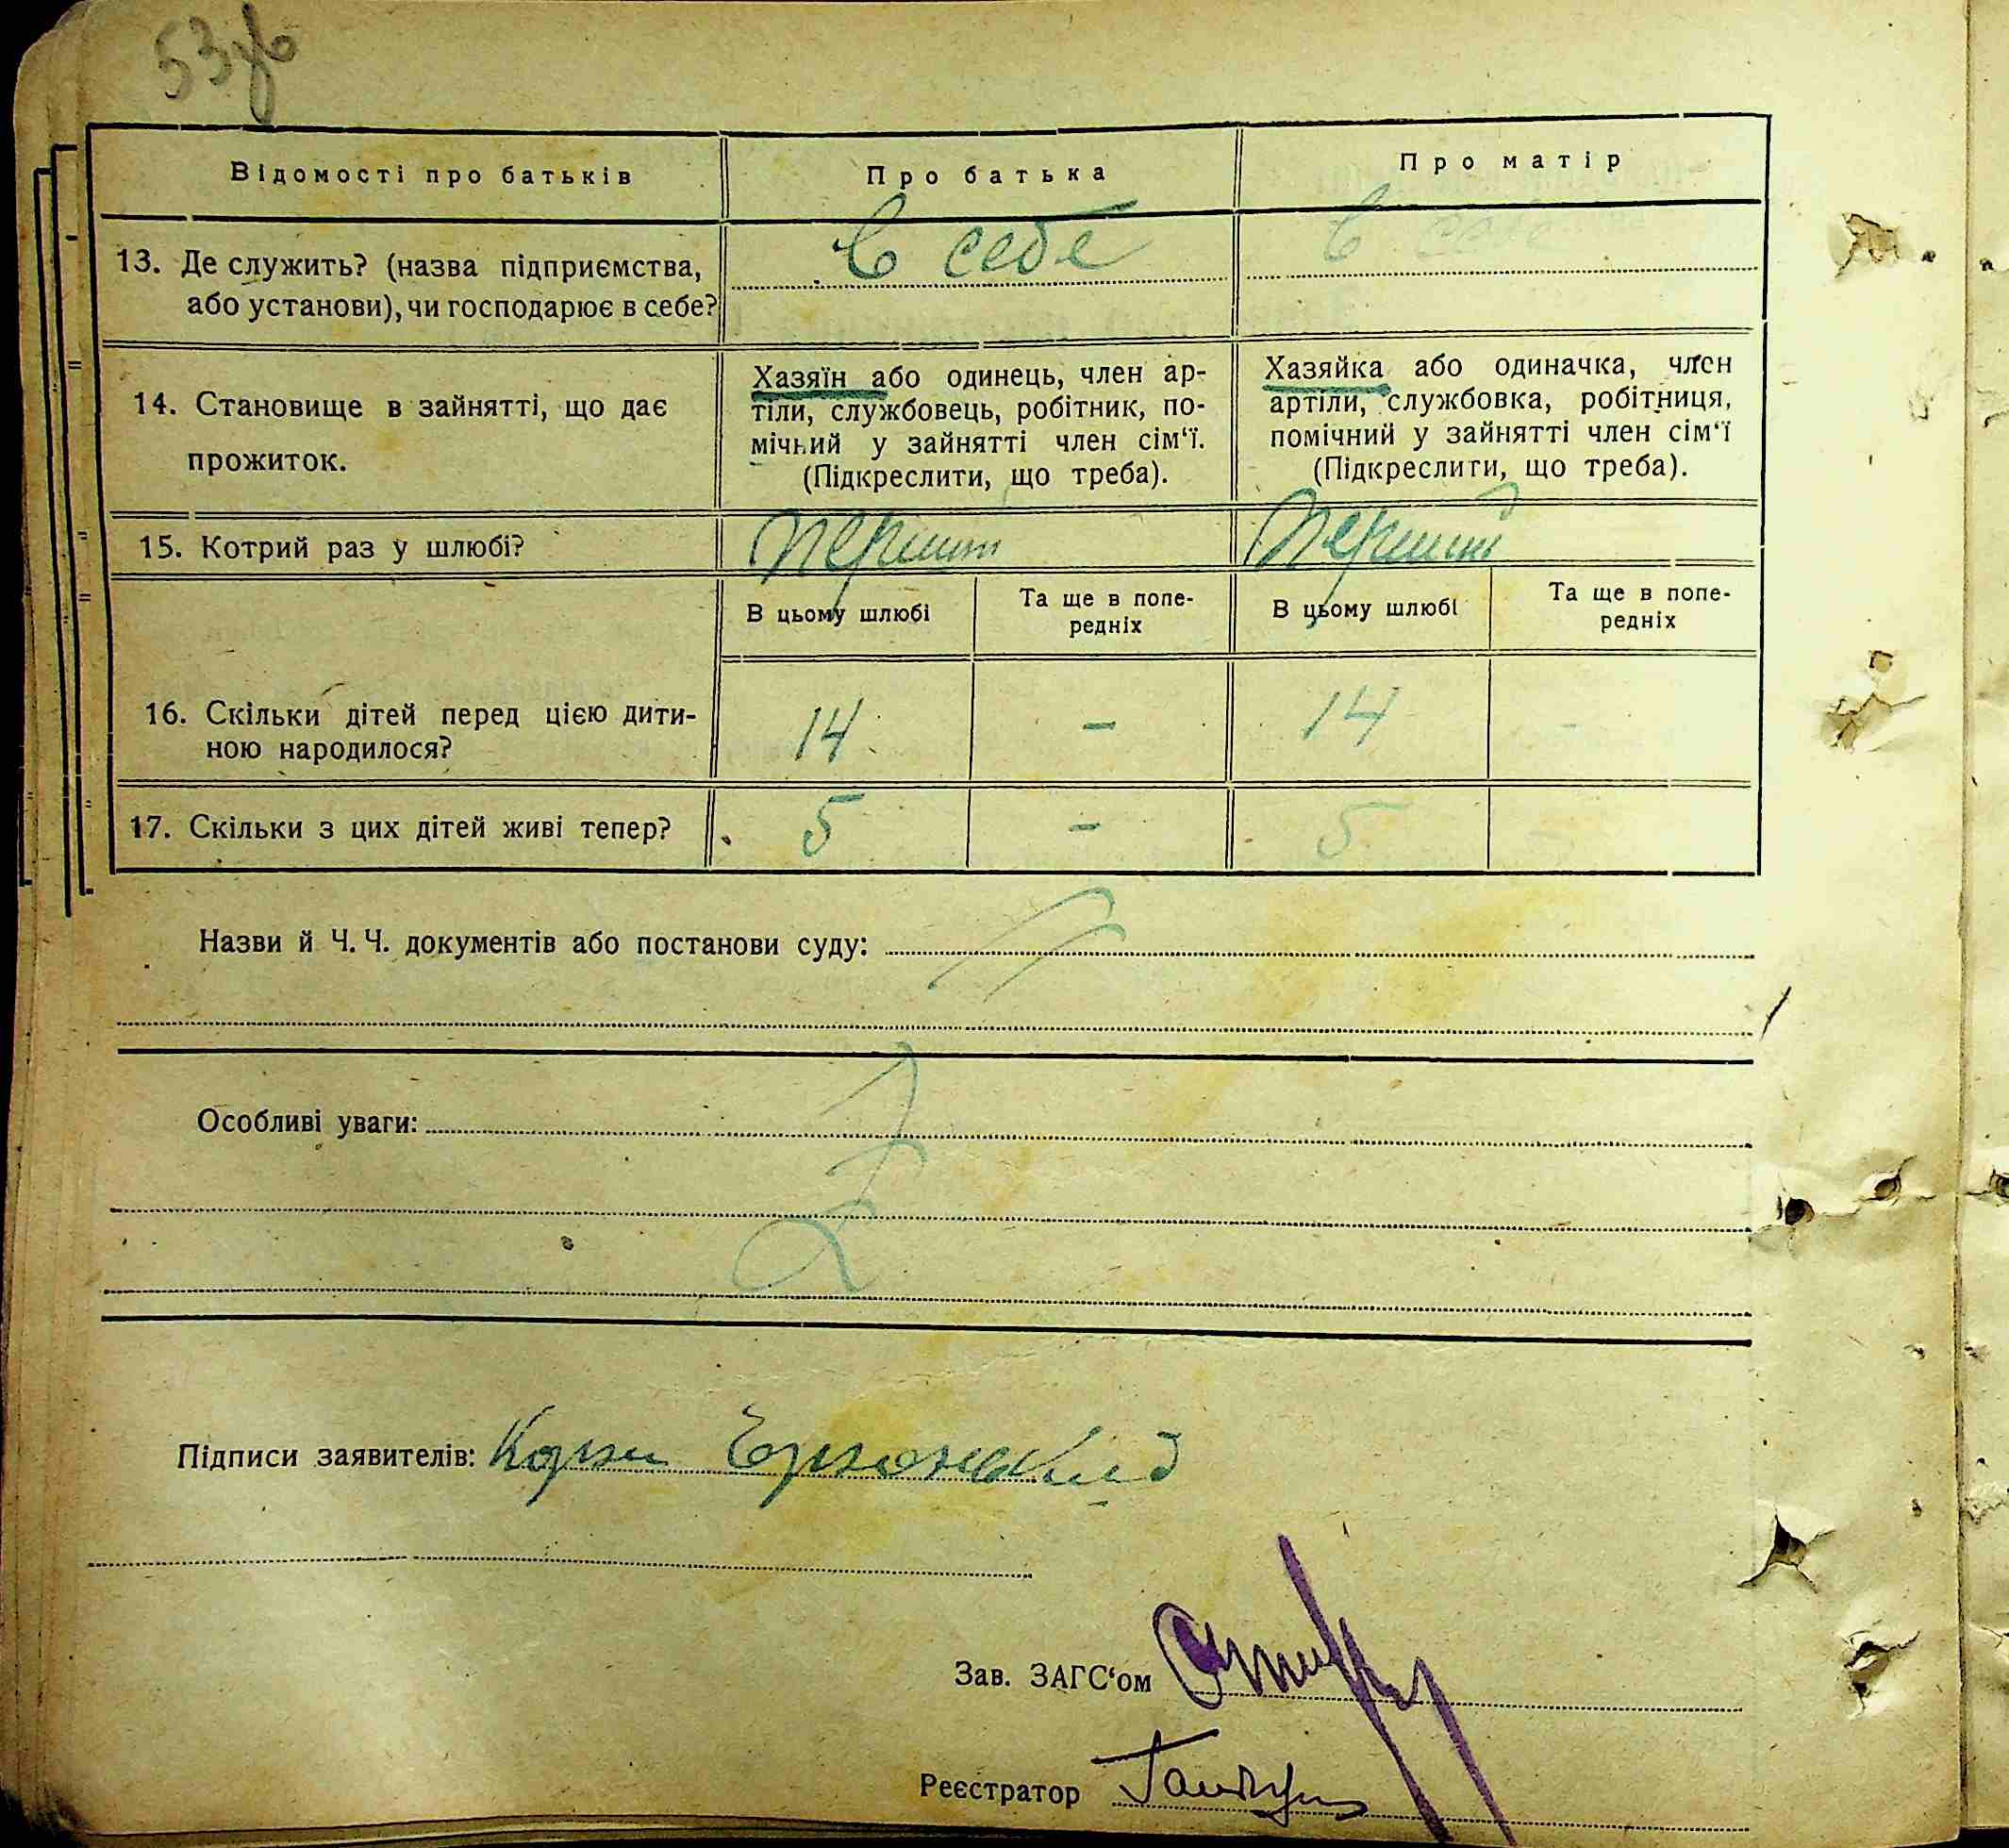 53зв
Відомості про батьків
Про батька
Про матір
13. Де служить? (назва підприємства,
або установи), чи господарює в себе?
в себе
в себе
14. Становище в зайнятті, що дає
прожиток.
Хазяїн або одинець, член ар-
тіли, службовець, робітник, по-
мічний у зайнятті член сім‘ї.
(Підкреслити, що треба).
Хазяйка або одиначка, член
артіли, службовка, робітниця,
помічний у зайнятті член сім‘ї
(Підкреслити, що треба).
15. Котрий раз у шлюбі?
перший
перший
В цьому шлюбі
Та ще в попе-
редніх
В цьому шлюбі
Та ще в попе-
редніх
16. Скільки дітей перед цією дити-
ною народилося?
14
-
14
-
17. Скільки з цих дітей живі тепер?
5
-
5
Назви й Ч. Ч. документів або постанови суду:
Особливі уваги:
Підписи заявителів:
Зав. ЗАГС‘ом
Реєстратор